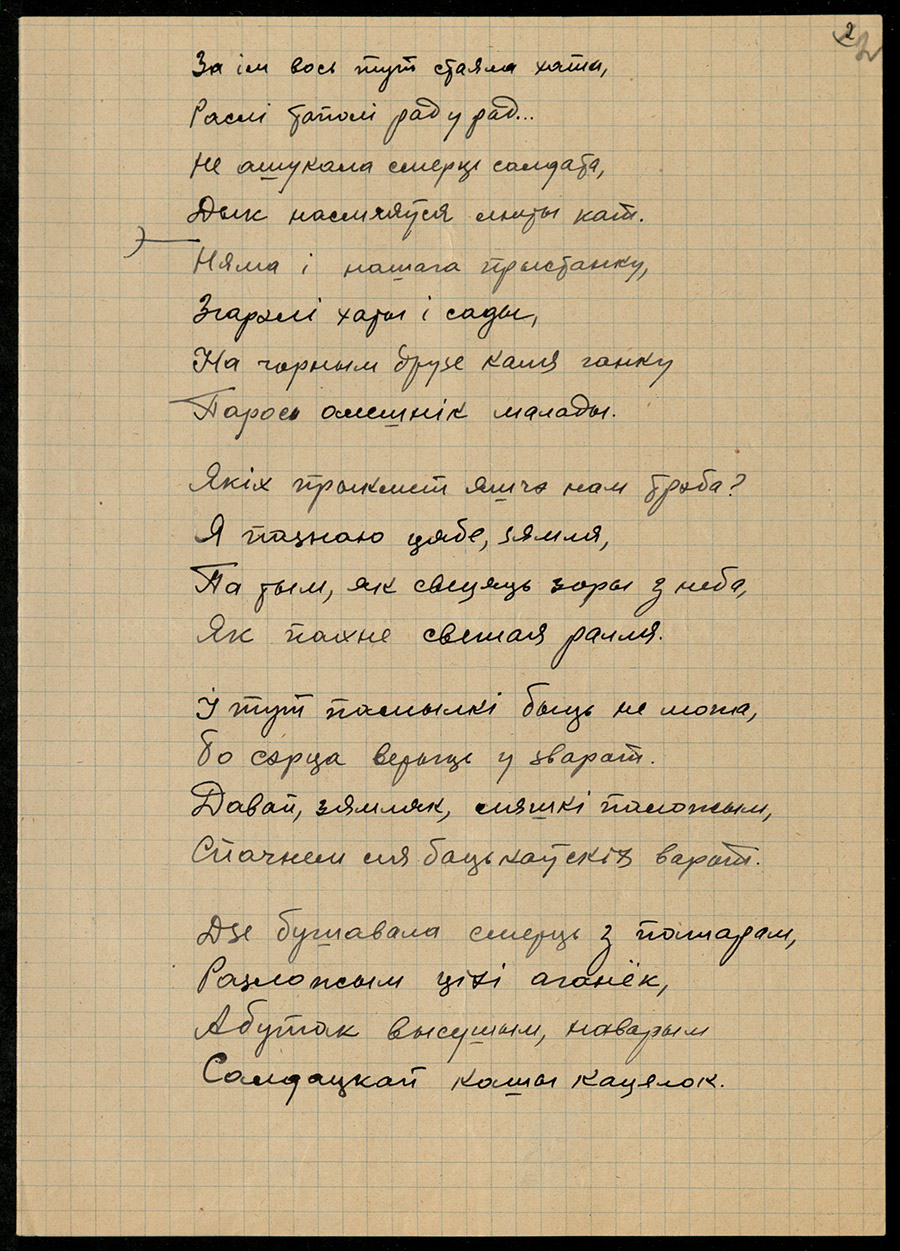 2
За ім вось тут стаяла хата,
Раслі таполі рад у рад...
Не ашукала смерць салдата,
Дык насмяяўся люты кат.
Няма і нашага прыстанку,
Згарэлі хаты і сады,
На чорным друзе каля ганку
Парос алешнік малады.
Якіх прыкмет яшчэ нам трэба?
Я пазнаю цябе, зямля,
Па тым, як свецяць зоры з неба,
Як пахне свежая ралля.
І тут памылкі быць не можа,
Бо сэрца верыць у зварот.
Давай, зямляк, мяшкі паложым,
Спачнем ля бацькаўскіх варот.
Дзе бушавала смерць з пажарам,
Разложым ціхі аганёк,
Абутак высушым, наварым
Салдацкай кашы кацялок.